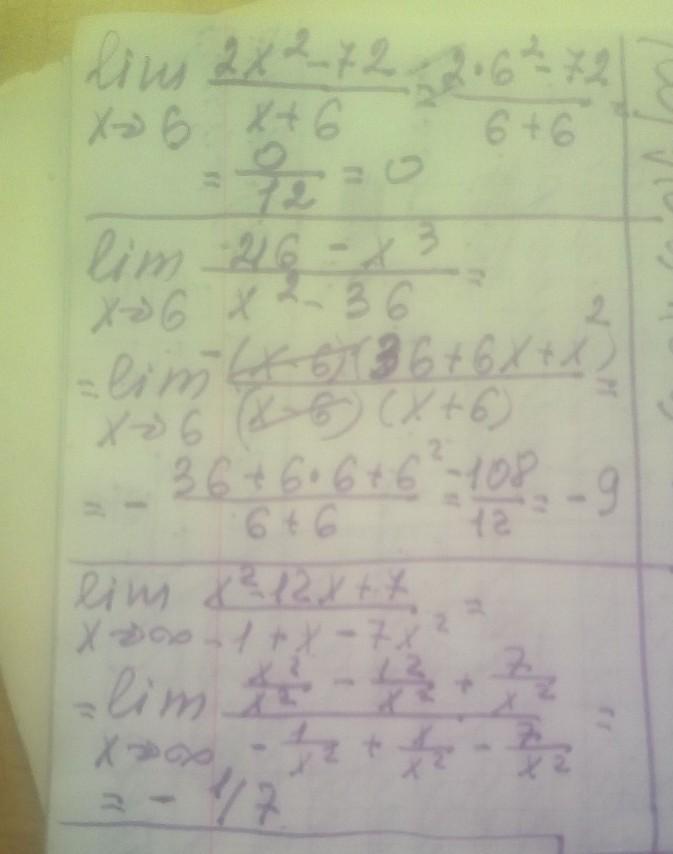 lim x→6 (2x² - 72)/(x + 6) = (2·6² - 72)/(6 + 6) =
= 0/12 = 0
lim x→6 (216 - x³)/(x² - 36) =
= lim x→6 -(x - 6)(36 + 6x + x²)/((x - 6)(x + 6)) =
= - (36 + 6·6 + 6²)/(6 + 6) = -108/12 = -9
lim x→∞ (x² - 12x + 7)/(-1 + x - 7x²) =
= lim x→∞ (x²/x² - 12/x² + 7/x²)/(-1/x² + x/x² - 7/x²) =
= - 1/7